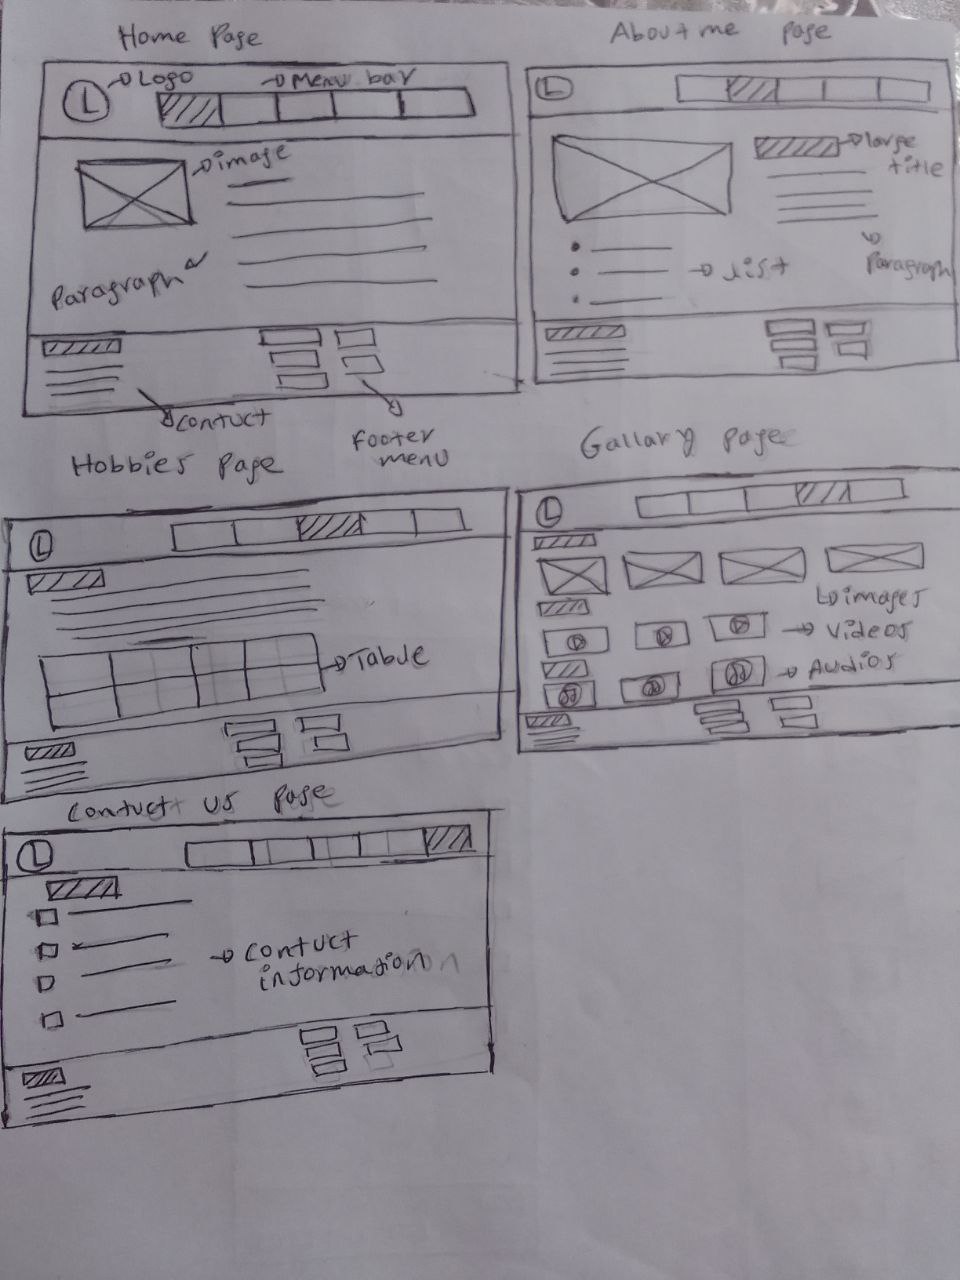 Home Page
Logo
Menu bar
L
image
Paragraph
contuct
Footer
menu
About me page
L
large
title
Paragraph
List
Hobbies page
L
Tabde
Gallary page
L
images
Videos
Audios
Contuct us page
L
contuct
information